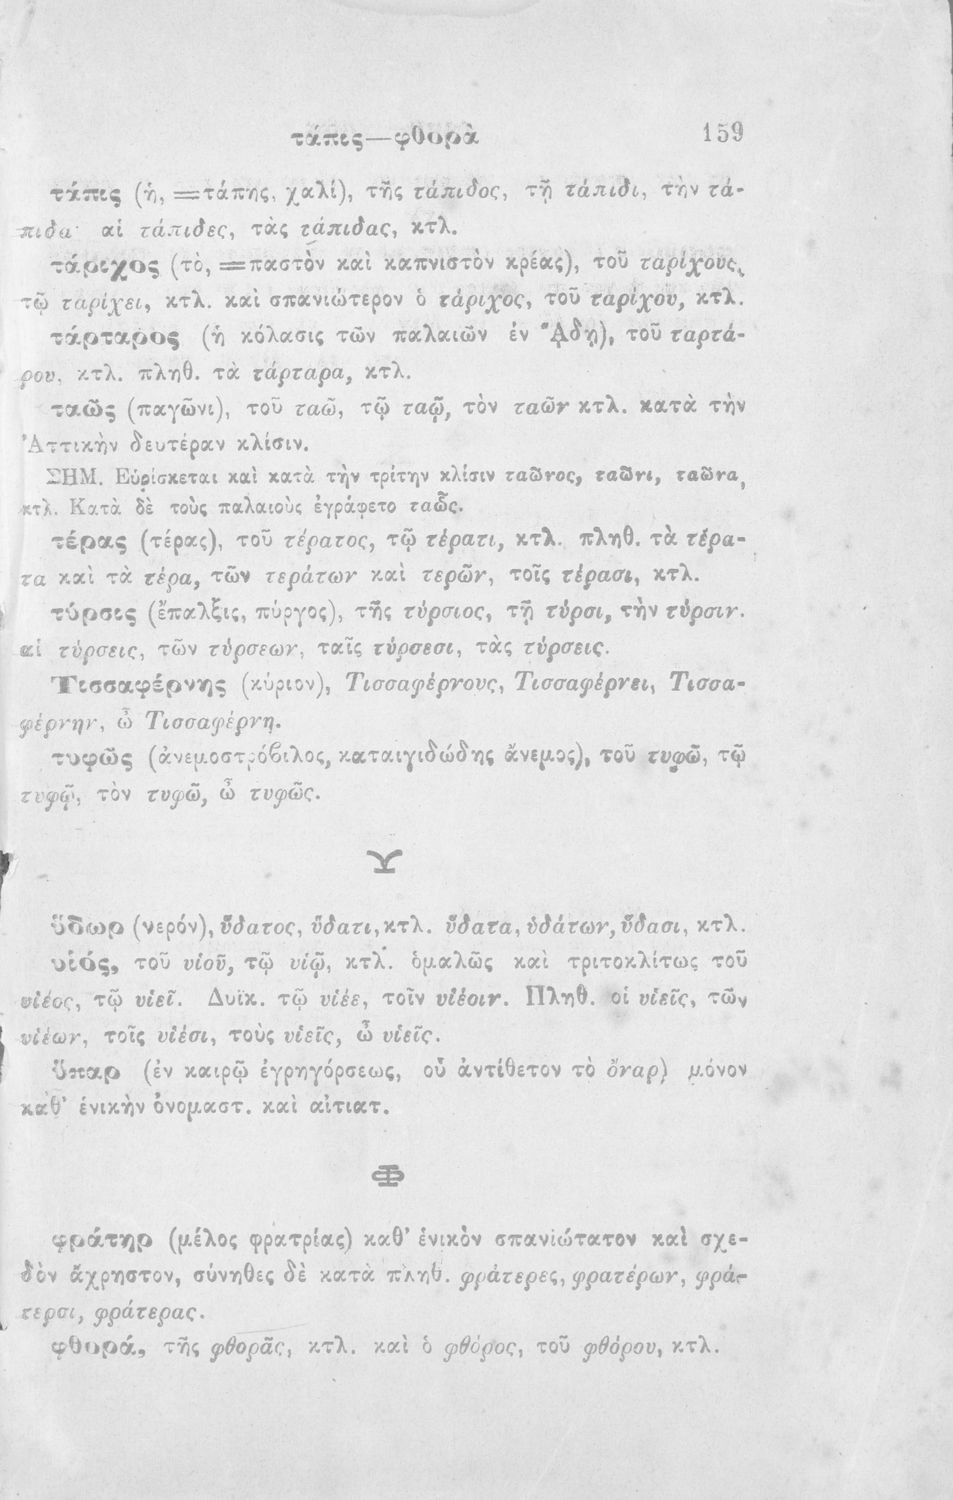 τάπις—φθορὰ 159
τάπις (ἡ, =τάπης, χαλί), τῆς τάπιδος, τῇ τάπιδι, τὴν τά-
πιδα· αἱ τάπιδες, τὰς τάπιδας, κτλ.
τάριχος (τὸ, =παστὸν καὶ καπνιστὸν κρέας), τοῦ ταρίχους,
τῷ ταρίχει, κτλ. καὶ σπανιώτερον ὁ τάριχος, τοῦ ταρίχου, κτλ.
τάρταρος (ἡ κόλασις τῶν παλαιῶν ἐν ᾍδῃ), τοῦ ταρτά-
ρου, κτλ. πληθ. τὰ τάρταρα, κτλ.
ταῶς (παγῶνι), τοῦ ταῶ, τῷ ταῷ, τὸν ταῶν κτλ. κατὰ τὴν
Ἀττικὴν δευτέραν κλίσιν.
ΣΗΜ. Εὑρίσκεται καὶ κατὰ τὴν τρίτην κλίσιν ταῶνος, ταῶνι, ταῶνα,
κτλ. Κατὰ δὲ τοὺς παλαιοὺς ἐγράφετο ταὧς.
τέρας (τέρας), τοῦ τέρατος, τῷ τέρατι, κτλ. πληθ. τὰ τέρα-
τα καὶ τὰ τέρα, τῶν τεράτων καὶ τερῶν, τοῖς τέρασι, κτλ.
τύρσις (ἔπαλξις, πύργος), τῆς τύρσιος, τῇ τύρσι, τὴν τύρσιν.
αἱ τύρσεις, τῶν τύρσεων, ταῖς τύρσεσι, τὰς τύρσεις.
Τισσαφέρνης (κύριον), Τισσαφέρνους, Τισσαφέρνει, Τισσα-
φέρνην, ὦ Τισσαφέρνη.
τυφῶς (ἀνεμοστρόβιλος, καταιγιδώδης ἄνεμος), τοῦ τυφῶ, τῷ
τυφῷ, τὸν τυφῶ, ὦ τυφῶς.
Υ
ὕδωρ (νερόν), ὕδατος, ὕδατι, κτλ. ὕδατα, ὑδάτων, ὕδασι, κτλ.
υἱός, τοῦ υἱοῦ, τῷ υἱῷ, κτλ. ὁμαλῶς καὶ τριτοκλίτως τοῦ
υἱέος, τῷ υἱεῖ. Δυϊκ. τῷ υἱέε, τοῖν υἱέοιν. Πληθ. οἱ υἱεῖς, τῶν
υἱέων, τοῖς υἱέσι, τοὺς υἱεῖς, ὦ υἱεῖς.
ὕπαρ (ἐν καιρῷ ἐγρηγόρσεως, οὗ ἀντίθετον τὸ ὄναρ) μόνον
καθ' ἑνικὴν ὀνομαστ. καὶ αἰτιατ.
Φ
φράτηρ (μέλος φρατρίας) καθ' ἑνικὸν σπανιώτατον καὶ σχε-
δὸν ἄχρηστον, σύνηθες δὲ κατὰ πληθ. φράτερες, φρατέρων, φρά-
τερσι, φράτερας.
φθορά, τῆς φθορᾶς, κτλ. καὶ ὁ φθόρος, τοῦ φθόρου, κτλ.